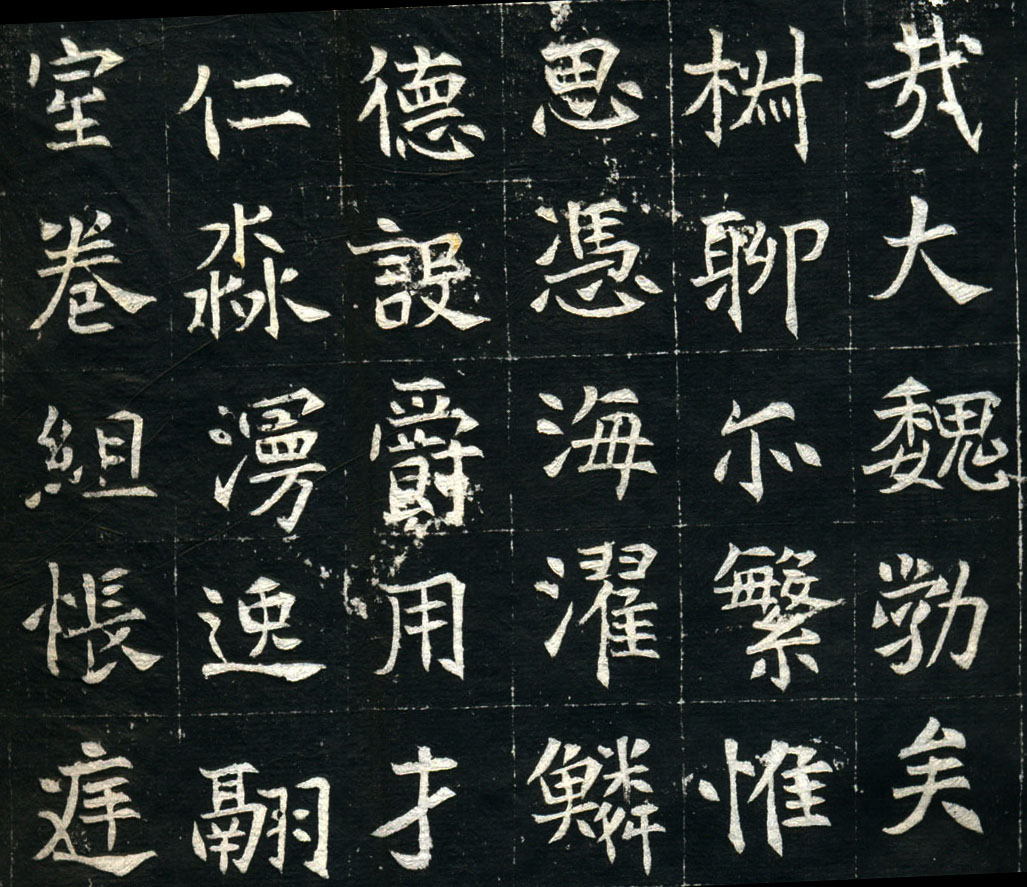 哉大魏勃矣
聊尒繁惟
思憑海濯鱗
德設爵用才
仁淼漫逸翮
室卷組帳庭